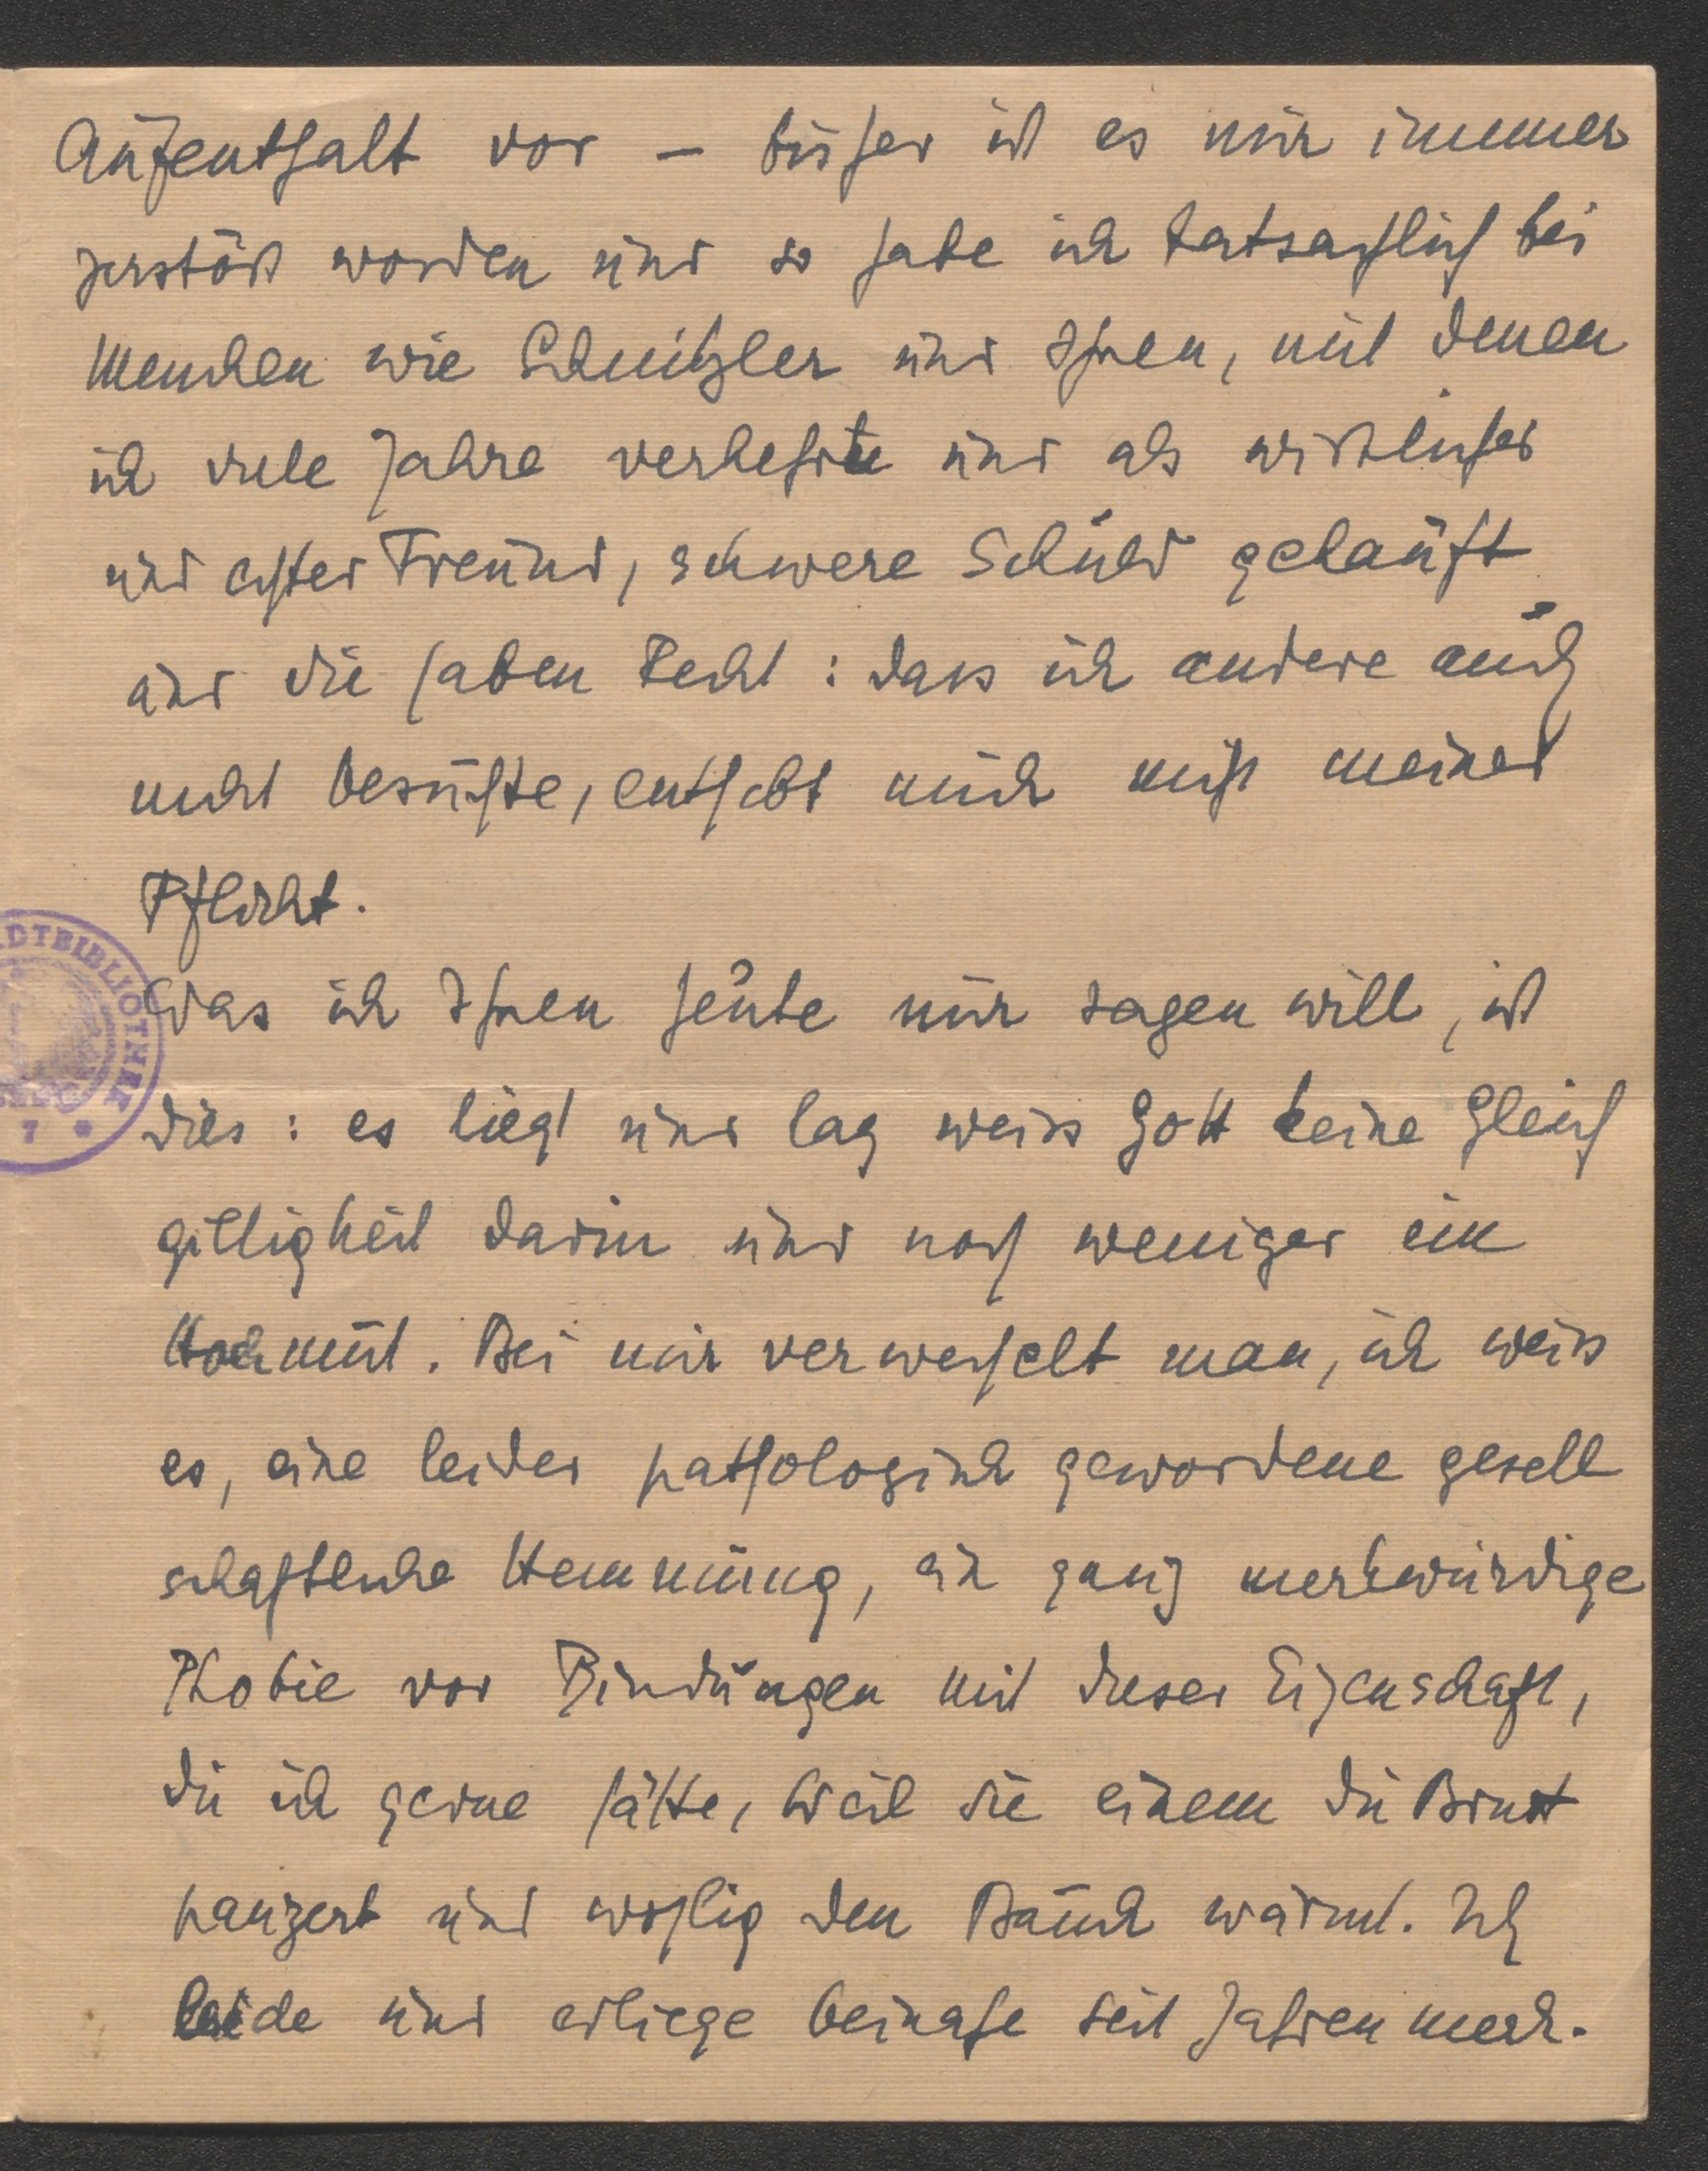 Aufenthalt vor – bisher ist es mir immer
zerstört worden und so habe ich tatsächlich bei
Menschen wie Schnitzler und Ihnen, mit denen
ich viele Jahre verkehrte und als wirklicher
und echter Freund, schwere Schuld gehäuft
und Sie haben Recht: dass ich andere auch
nicht besuchte, enthebt mich nicht meiner
Pflicht.
Was ich Ihnen heute nur sagen will, ist
dies: es liegt und lag weiss Gott keine Gleich
giltigkeit darin und noch weniger ein
Hochmut. Bei mir verwechselt man, ich weiss
es, eine leider pathologisch gewordene gesell
schaftliche Hemmung, ein ganz merkwürdige
Phobie vor Bindungen mit dieser Eigenschaft,
die ich gerne hätte, weil sie einem die Brust
panzert und wohlig den Bauch wärmt. Ich
leide und erliege beinahe seit Jahren merk-
STADTBIBLIOTHEK
7